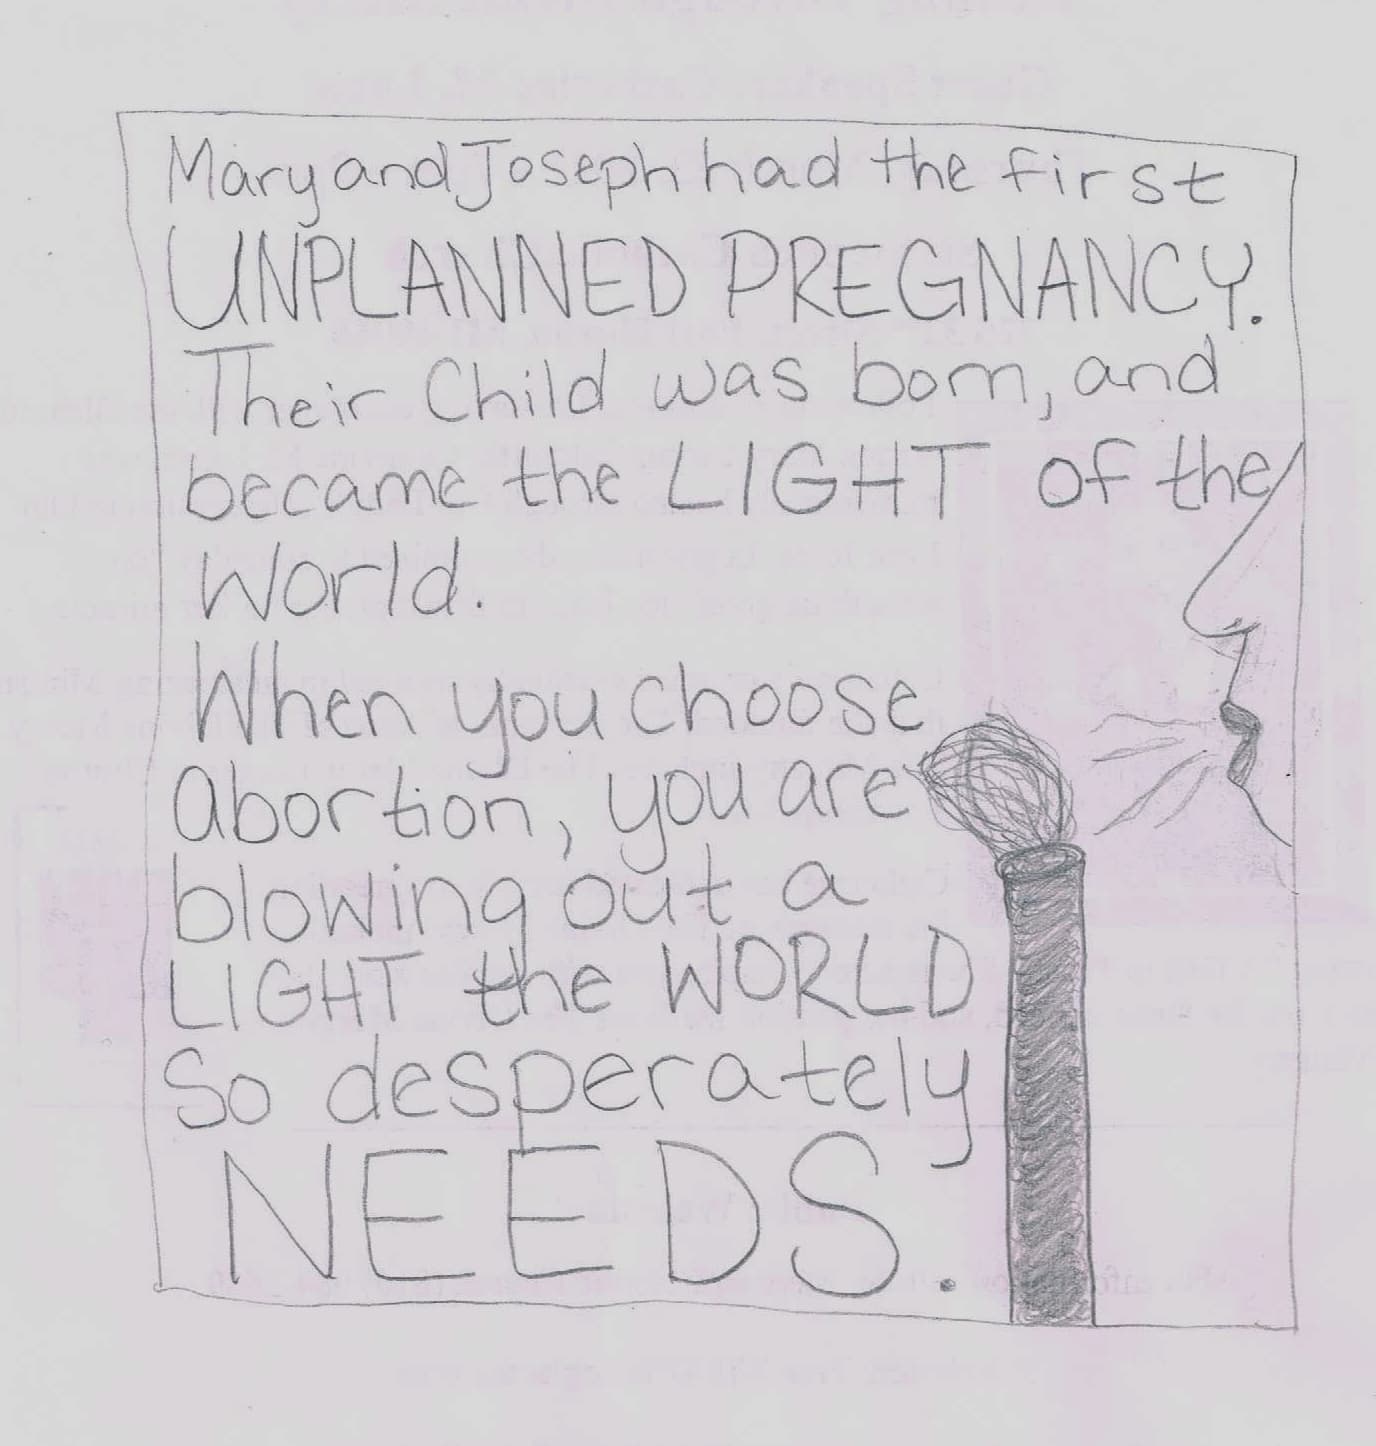 Mary and Joseph had the first
UNPLANNED PREGNANCY.
Their Child was born, and
became the LIGHT of the
World.
When you choose
abortion, you are
blowing out a
LIGHT the WORLD
So desperately
NEEDS.